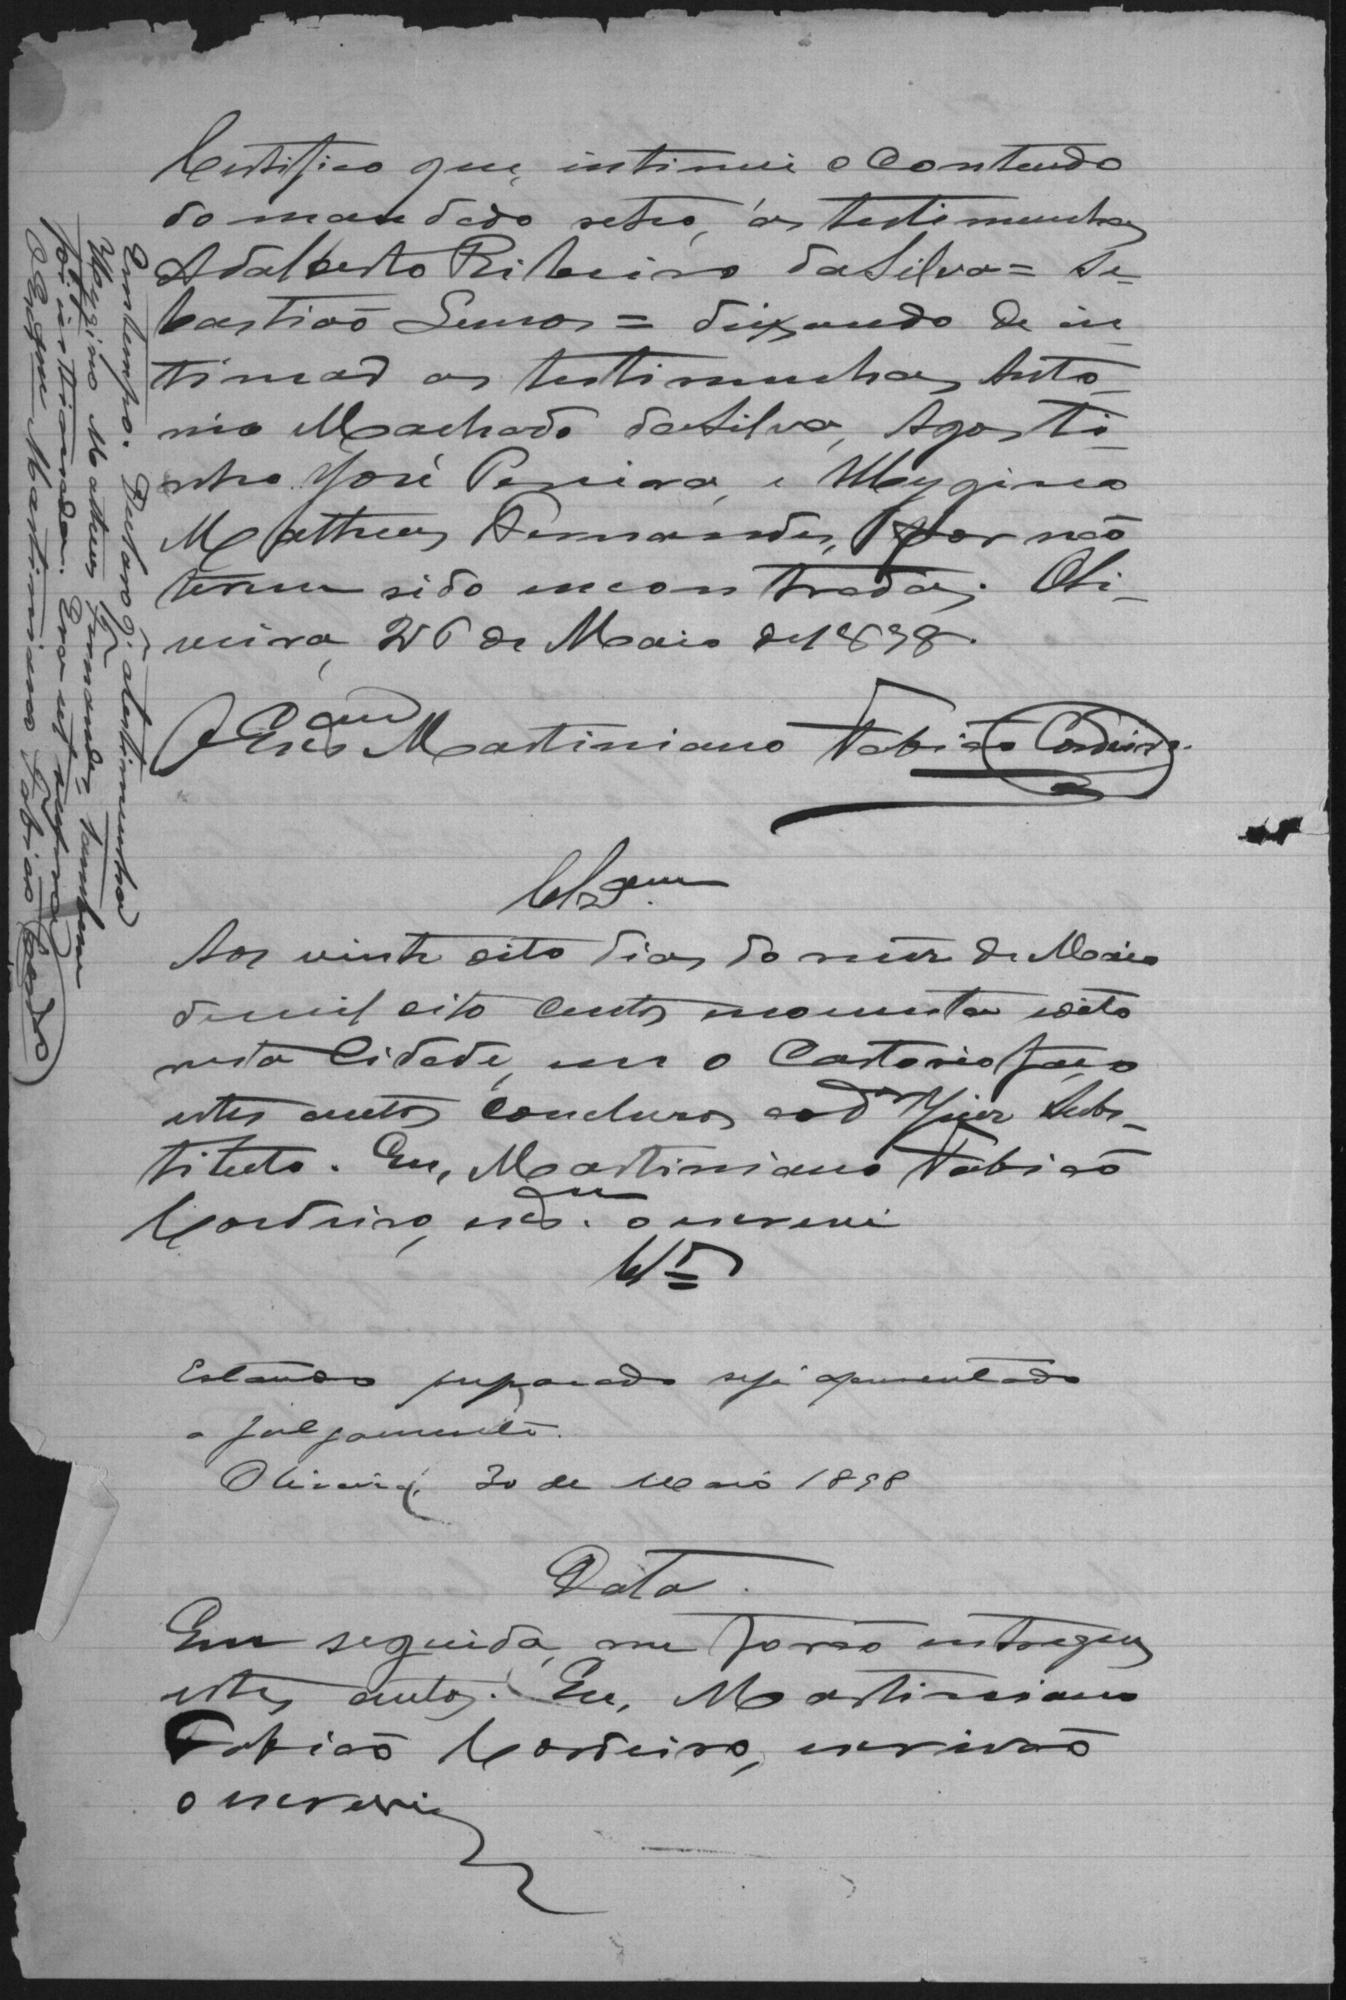 Certifico que, intimei o contendo
do mandado retro, ás testimunhas
Adalberto Ribeiro da Silva = Se-
bastião Lemos = deixando de in-
timar as testimunhas Anto-
nio Machado da Silva, Agosti-
nho José Pereira, e Hygino
Matheus Fernandes, por não
terem sido encontradas. Oli-
veira, 26 de Maio de 1898.
O Escam Martiniano Fabião Cordeiro
Em tempo. Declaro q. a testimunha
Hygino Matheus Fernandes tambem
foi intimada. Era ut supra
O Escam Martiniano Fabião Cordro
Clsam.
Aos vinte oito dias do mez de Maio
de mil oito centos noventa e oito
nesta Cidade, em o Cartorio faço
estes autos conclusos ao Dr Juiz Subs-
tituto. Eu, Martiniano Fabião
Cordeiro, escam. o escrevi
Cls
Estando preparado seja apresentado
a julgamento.
Oliveira, 30 de Maio 1898
Data.
Em seguida, me forão entregues
estes autos. Eu, Martiniano
Fabião Cordeiro, escrivão
o escrevi